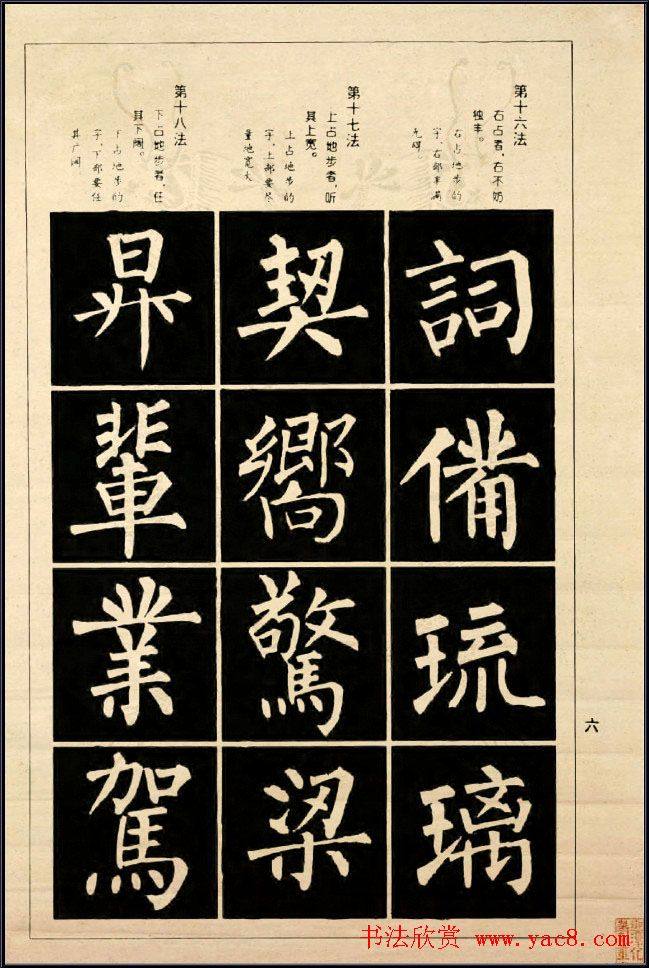 第十六法
右占者，右不妨
独丰。
右占地步的
字，右部丰满
无碍
詞
備
琉
璃
第十七法
上占地步者，听
其上宽。
上占地步的
字，上部要尽
量地宽大
契
嚮
驚
梁
第十八法
下占地步者，任
其下阔。
下占地步的
字，下部要任
其广阔
昇
輩
業
駕
六
书法欣赏 www.yac8.com